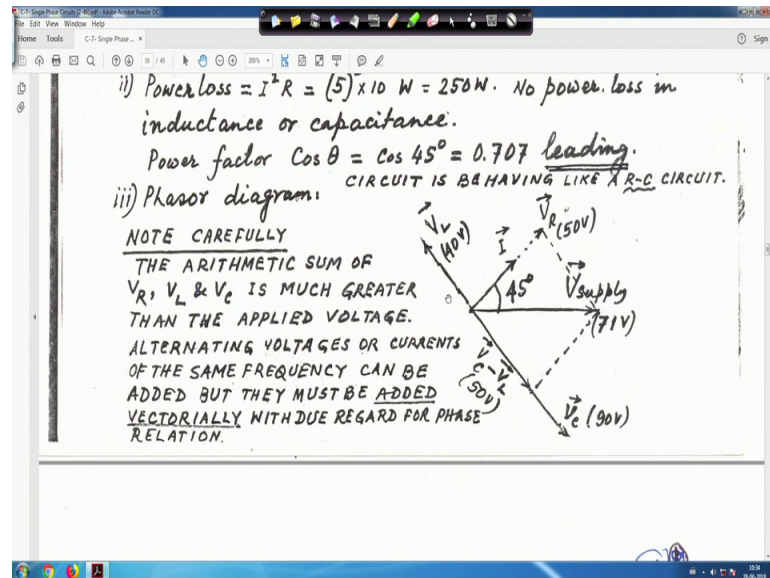 C-7- Single Phase Circuits (2-46).pdf - Adobe Acrobat Reader DC
File Edit View Window Help
Home Tools C-7- Single Phase ... × Sign
16 / 45 200%
ii) Power loss = I²R = (5)² × 10 W = 250W. No power loss in
inductance or capacitance.
Power factor Cos θ = Cos 45° = 0.707 leading.
CIRCUIT IS BEHAVING LIKE A R-C CIRCUIT.
iii) Phasor diagram:
NOTE CAREFULLY
THE ARITHMETIC SUM OF
V_R, V_L & V_C IS MUCH GREATER
THAN THE APPLIED VOLTAGE.
ALTERNATING VOLTAGES OR CURRENTS
OF THE SAME FREQUENCY CAN BE
ADDED BUT THEY MUST BE ADDED
VECTORIALLY WITH DUE REGARD FOR PHASE
RELATION.
V_L
(40V)
I
V_R
(50V)
45°
V_supply
(71V)
V_C - V_L
(50V)
V_C (90V)
10:34